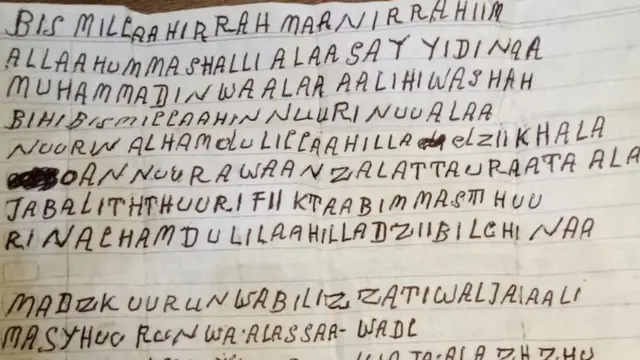 BISMILLAAHIRRAHMAANIRRAHIIM
ALLAAHUMMASHALLI ALAA SAYYIDINAA
MUHAMMADIN WAALAA AALIHI WASHAH
BIHI BISMILLAAHIN NUURI NUU ALAA
NUURIN ALHAMduLILLAAHILLA elZIIKHALA
OAN NUURA WAANZALATTAURAATA ALA
JABALITHTHUURI FII KTAABIMMASTHUU
RINALHAMDULILAAHILLADZIIBILGHINAA
MADZKUURUN WABILIZZATIWALJALAALI
MASYHUURUN WA-ALASSAA-WADL